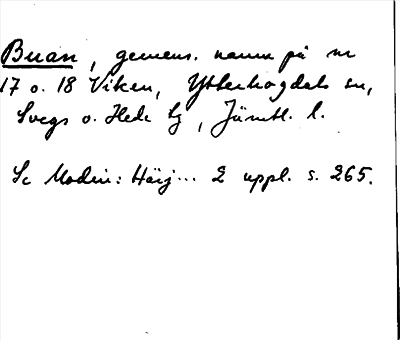 Buan, gemens. namn på nr
17 o. 18 Viken, Ytterhogdals sn,
Svegs o. Hede tg, Jämtl. l.
Se Modin: Härj... 2 uppl. s. 265.